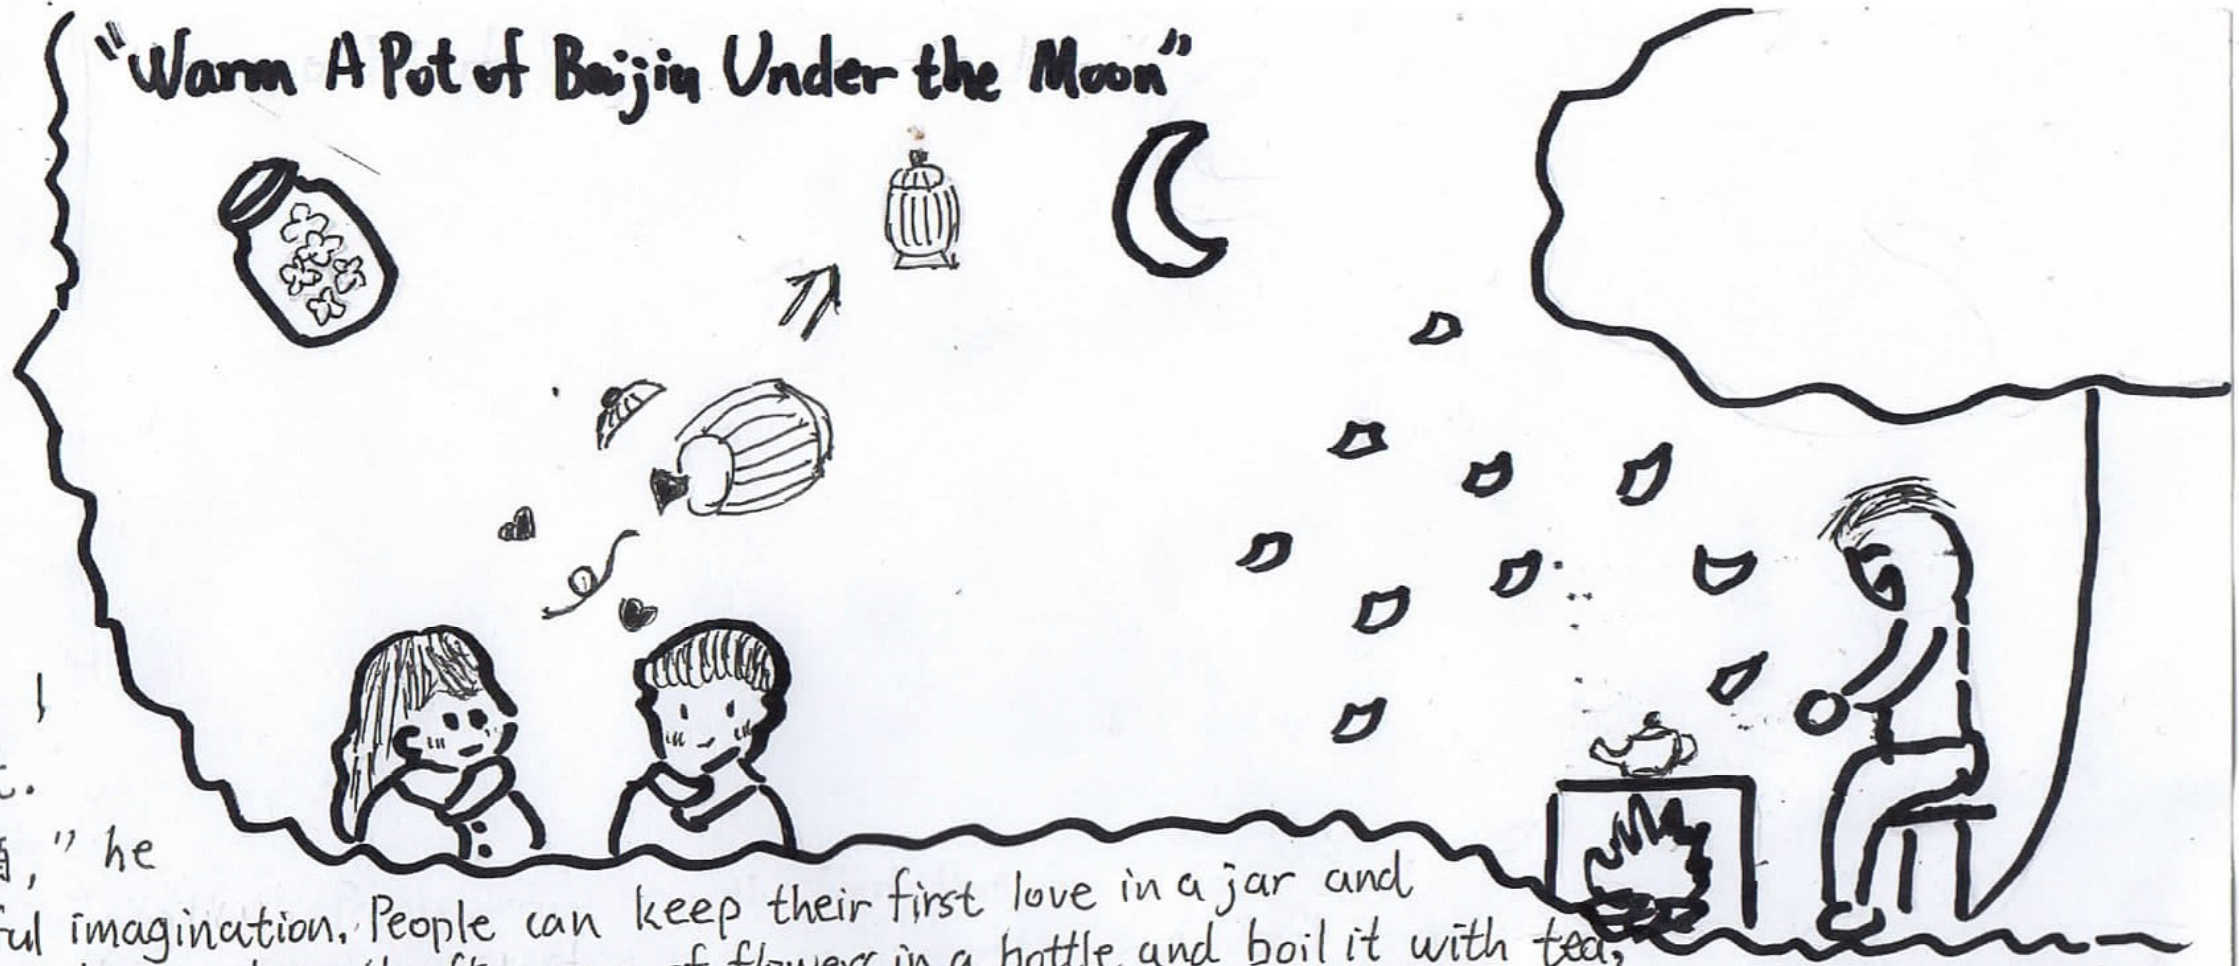 "Warm A Pot of Baijiu Under the Moon"
," he
ful imagination. People can keep their first love in a jar and
of flowers in a bottle, and boil it with tea,